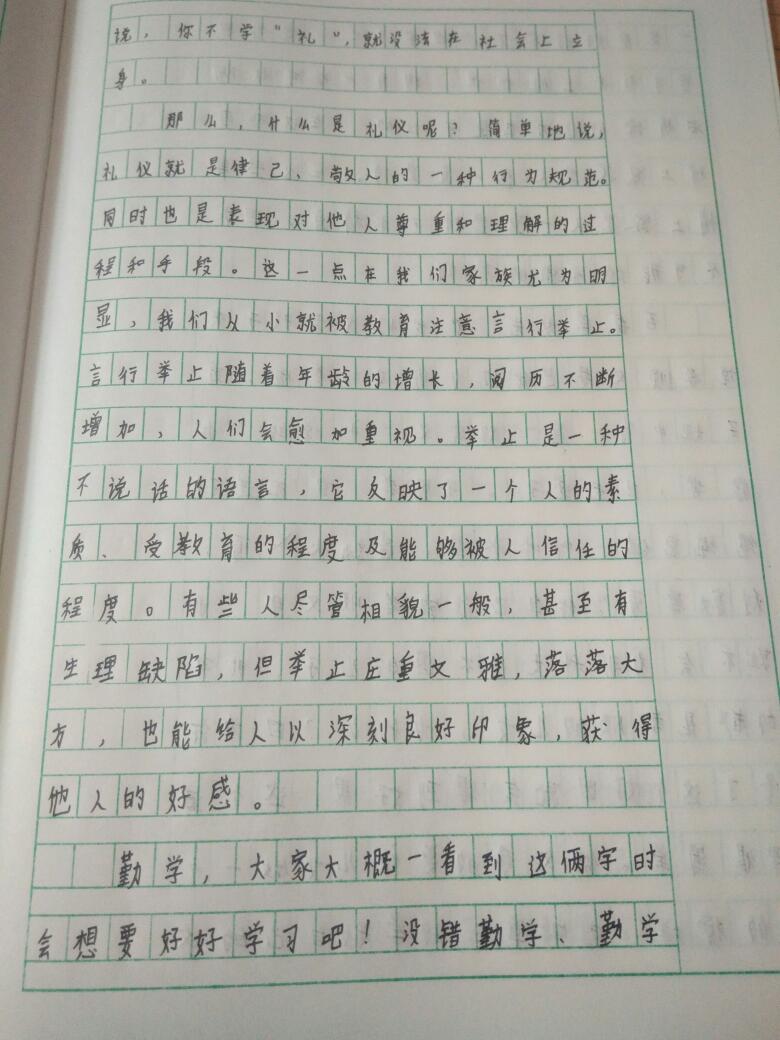 说，你不学“礼”，就没法在社会上立
身。
那么，什么是礼仪呢？简单地说，
礼仪就是律己、敬人的一种行为规范。
同时也是表现对他人尊重和理解的过
程和手段。这一点在我们家族尤为明
显，我们从小就被教育注意言行举止。
言行举止随着年龄的增长，阅历不断
增加，人们会愈加重视。举止是一种
不说话的语言，它反映了一个人的素
质、受教育的程度及能够被人信任的
程度。有些人尽管相貌一般，甚至有
生理缺陷，但举止庄重文雅，落落大
方，也能给人以深刻良好印象，获得
他人的好感。
勤学，大家大概一看到这俩字时
会想要好好学习吧！没错勤学、勤学